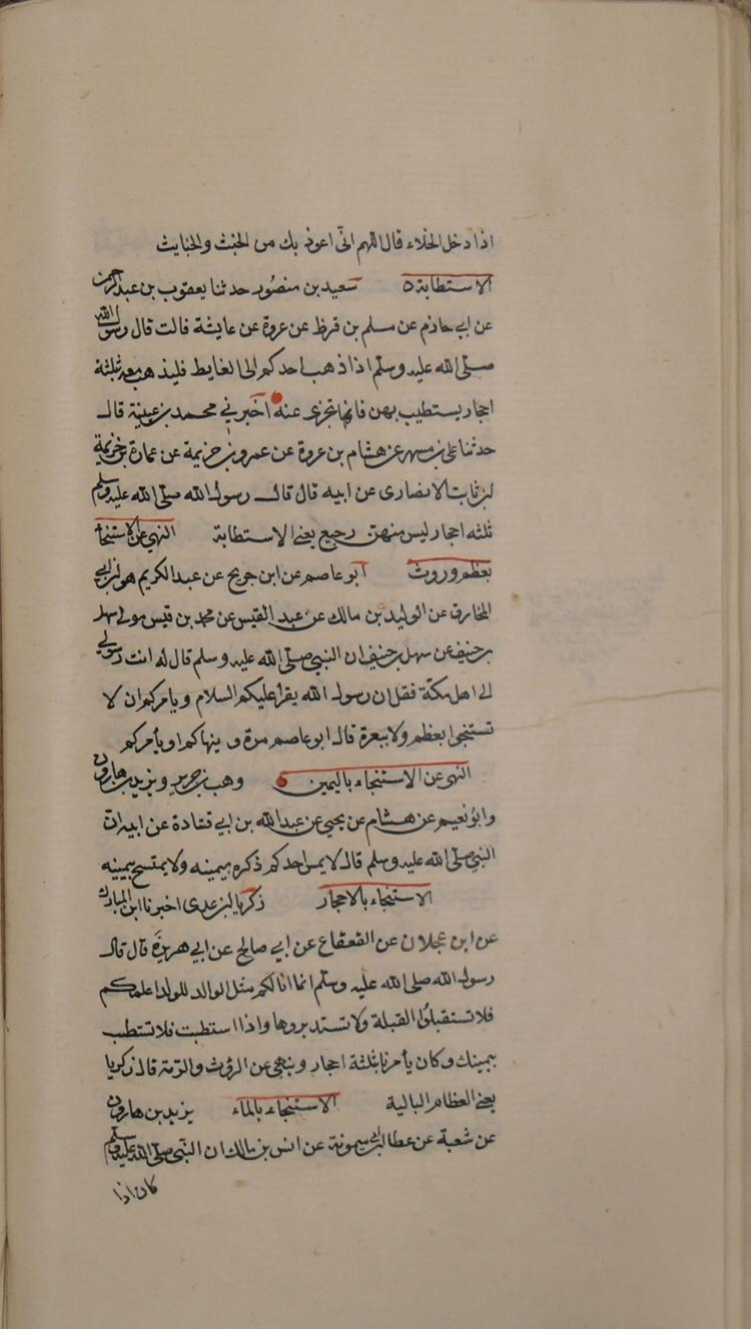 اذا دخل الخلاء قال اللهم انى اعوذ بك من الخبث والخبايث
الاستطابة ٥ سعيد بن منصور حدثنا يعقوب بن عبد الرحمن
عن ابي حازم عن مسلم بن قرظ عن عروة عن عايشة قالت قال رسول الله
صلى الله عليه وسلم اذا ذهب احدكم الى الغايط فليذهب معه ثلثة
احجار يستطيب بهن فانها تجزى عنه اخبرني محمد بن عيينة قال
حدثنا على بن مسهر عن هشام بن عروة عن عمرو بن خزيمة عن عمارة بن خزيمة
بن ثابت الانصارى عن ابيه قال قال رسول الله صلى الله عليه وسلم
ثلثه احجار ليس منهن رجيع يعنى الاستطابة النهى عن الاستنجا
بعظم وروث ابو عاصم عن ابن جريج عن عبد الكريم هو ابن ابي
المخارق عن الوليد بن مالك عن عبد القيس عن محمد بن قيس مولى سهل
بن حنيف عن سهل بن حنيف ان النبي صلى الله عليه وسلم قال له انت رسولي
الى اهل مكة فقل ان رسول الله يقرا عليكم السلام ويامركم ان لا
تستنجوا بعظم ولا ببعرة قال ابو عاصم مرة وينهاكم او يأمركم
النهى عن الاستنجاء باليمين وهب بن جرير ويزيد بن هارون
وابو نعيم عن هشام عن يحيى عن عبد الله بن ابي قتادة عن ابيه ان
النبي صلى الله عليه وسلم قال لا يمس احدكم ذكره بيمينه ولا يمتسح بيمينه
الاستنجاء بالاحجار زكريا بن عدى اخبرنا ابن المبارك
عن ابن عجلان عن القعقاع عن ابي صالح عن ابي هريرة قال قال
رسول الله صلى الله عليه وسلم انما انا لكم مثل الوالد للولد اعلمكم
فلا تستقبلوا القبلة ولا تستدبروها واذا استطبت فلا تستطب
بيمينك وكان يأمرنا بثلثة احجار وينهى عن الروث والرمة قال زكريا
يعنى العظام البالية الاستنجاء بالماء يزيد بن هارون
عن شعبة عن عطا بن ابي ميمونة عن انس بن مالك ان النبي صلى الله عليه وسلم
كان اذا